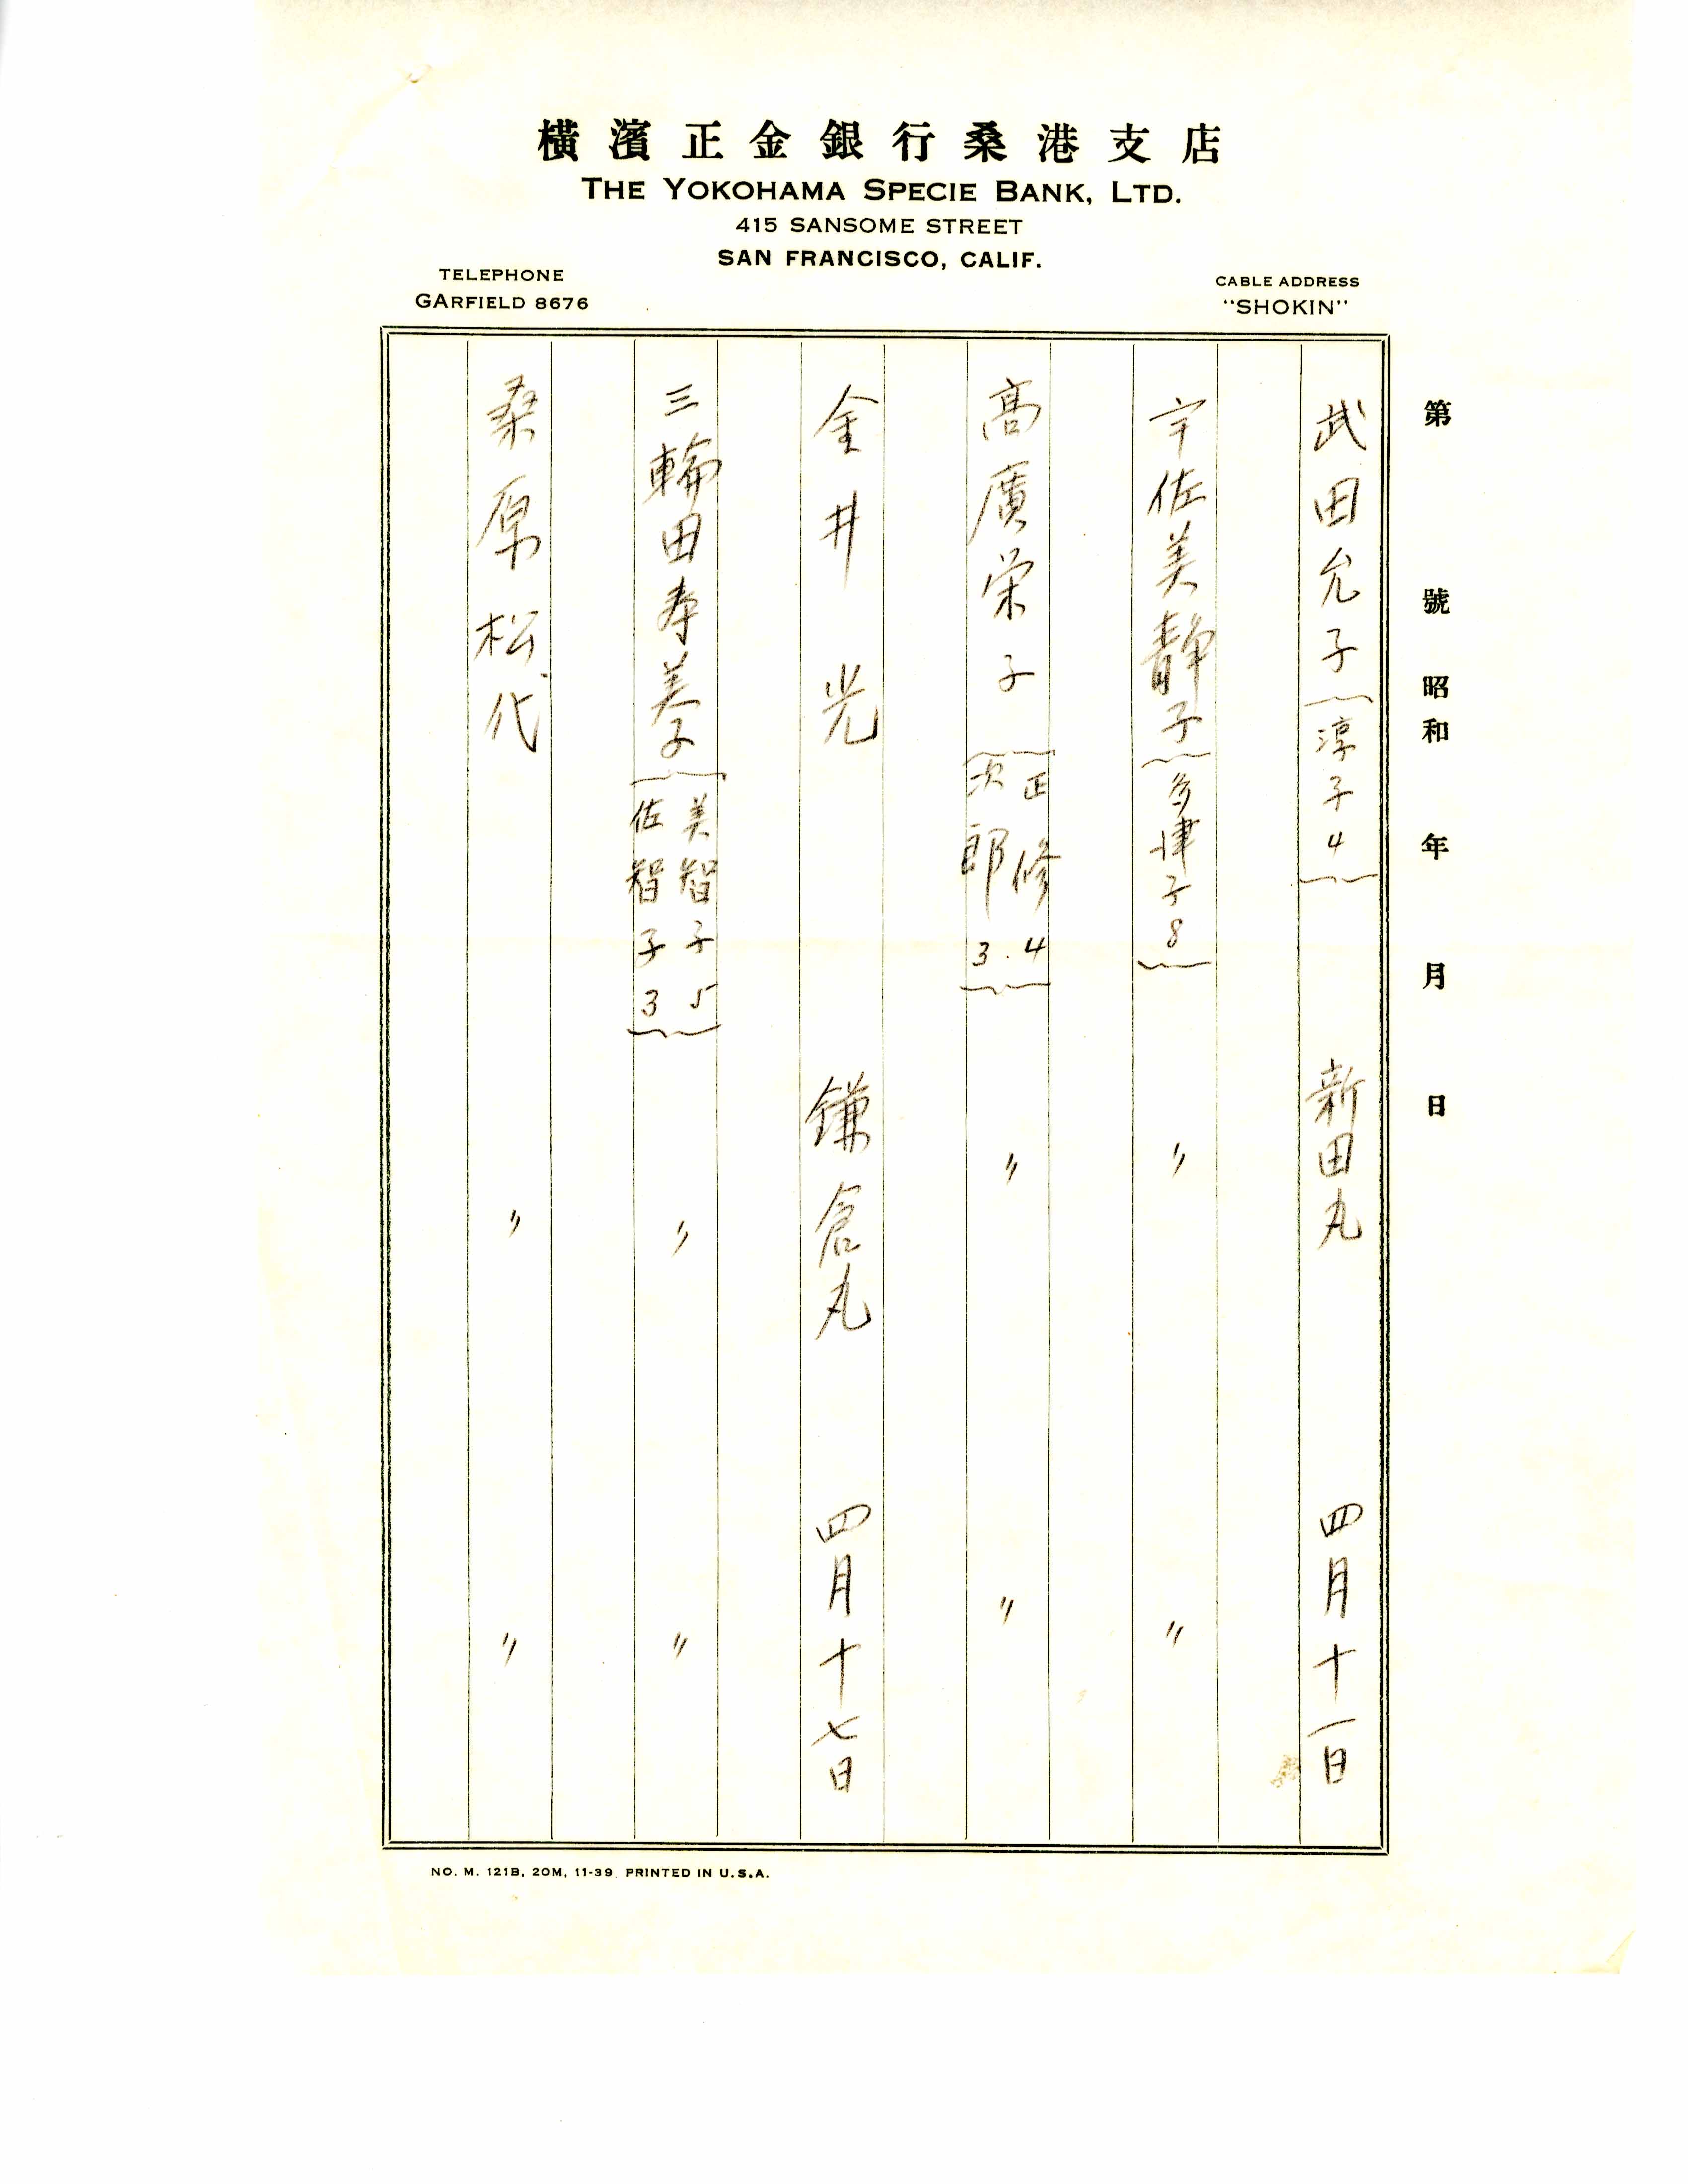 橫濱正金銀行桑港支店
THE YOKOHAMA SPECIE BANK, LTD.
415 SANSOME STREET
SAN FRANCISCO, CALIF.
TELEPHONE
GARFIELD 8676
CABLE ADDRESS
"SHOKIN"
第 號 昭和 年 月 日
武田允子（淳子4） 新田丸 四月十一日
宇佐美靜子（多津子8） 〃 〃
高廣栄子（正修4.次郎3） 〃 〃
金井光 鎌倉丸 四月十七日
三輪田寿美子（美智子5 佐智子3） 〃 〃
桑原松代 〃 〃
NO. M. 121B, 20M, 11-39. PRINTED IN U.S.A.